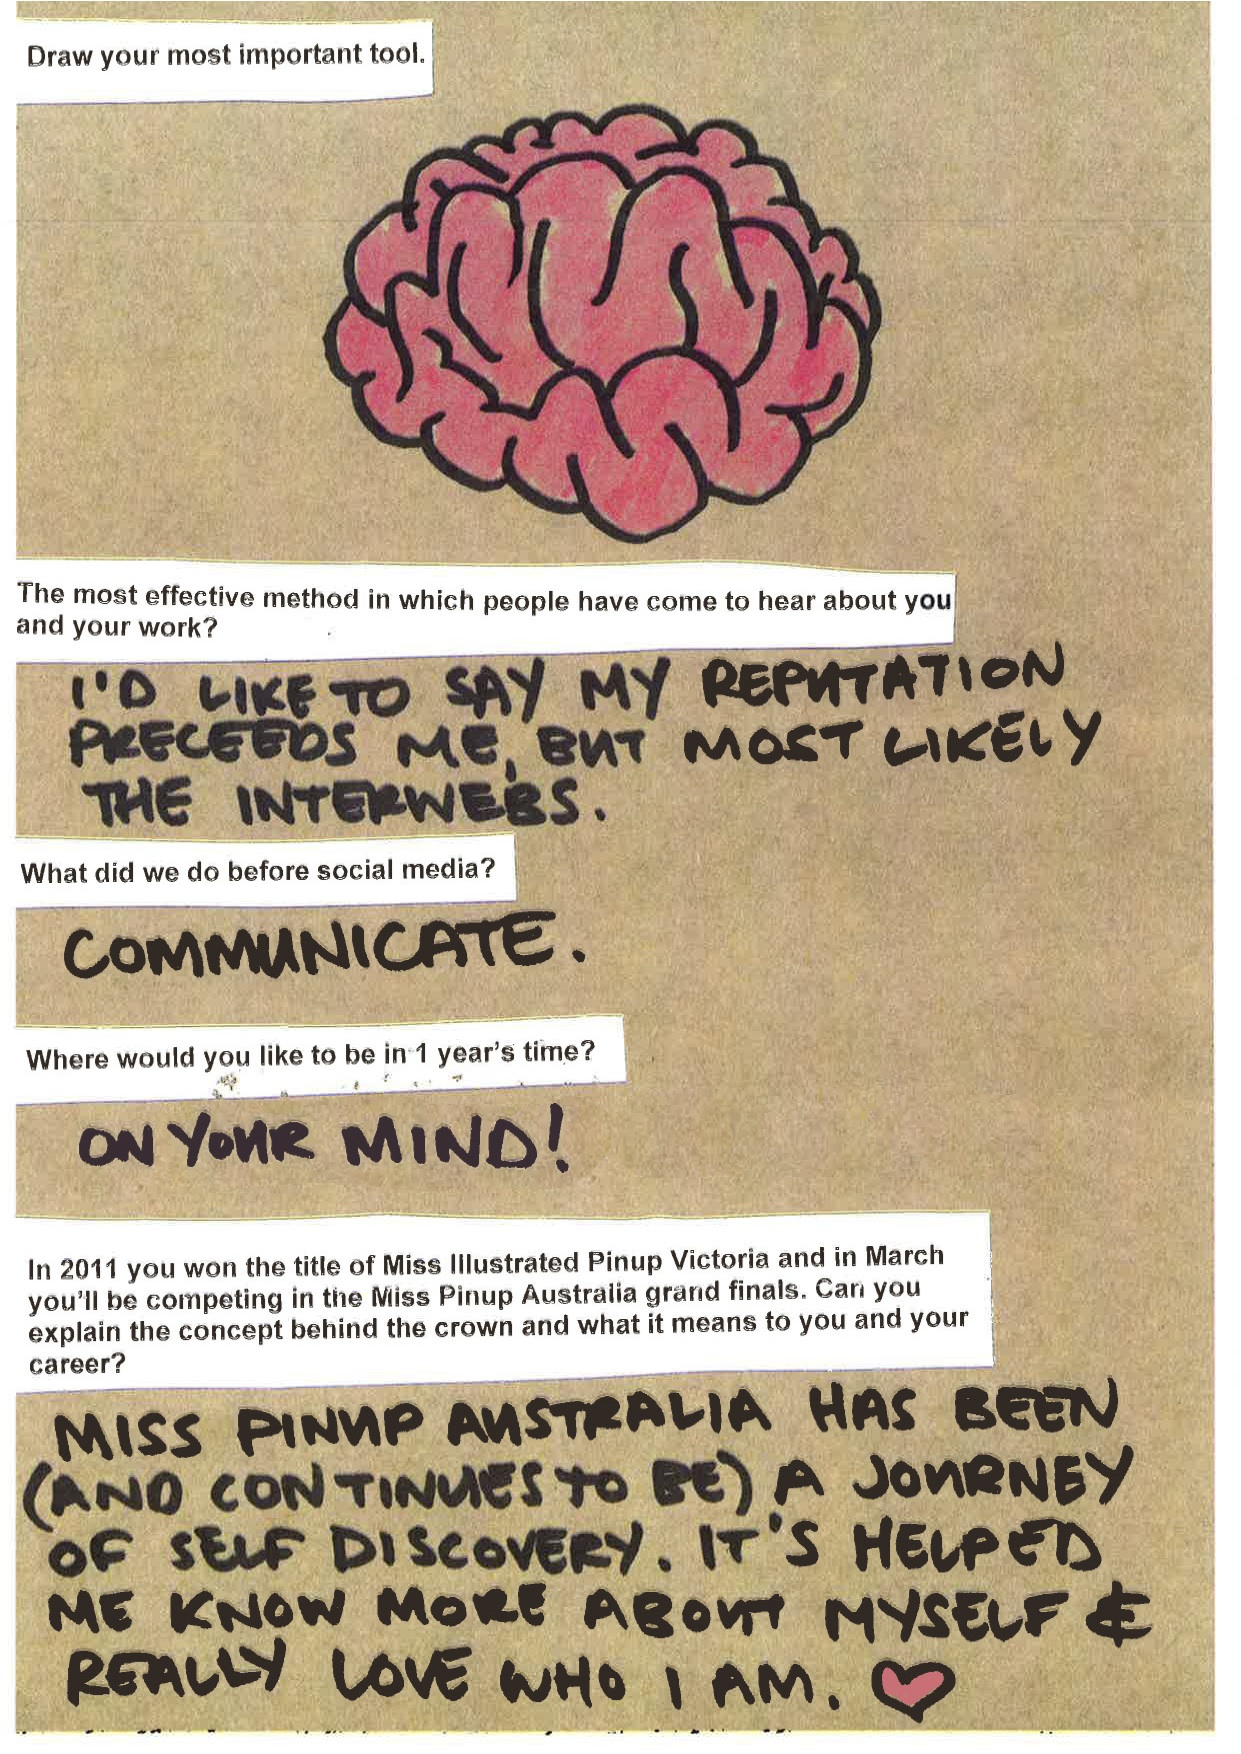 Draw your most important tool.
The most effective method in which people have come to hear about you
and your work?
I'D LIKE TO SAY MY REPUTATION
PRECEEDS ME, BUT MOST LIKELY
THE INTERWEBS.
What did we do before social media?
COMMUNICATE.
Where would you like to be in 1 year's time?
ON YOUR MIND!
In 2011 you won the title of Miss Illustrated Pinup Victoria and in March
you'll be competing in the Miss Pinup Australia grand finals. Can you
explain the concept behind the crown and what it means to you and your
career?
MISS PINUP AUSTRALIA HAS BEEN
(AND CONTINUES TO BE) A JOURNEY
OF SELF DISCOVERY. IT'S HELPED
ME KNOW MORE ABOUT MYSELF &
REALLY LOVE WHO I AM. ♥